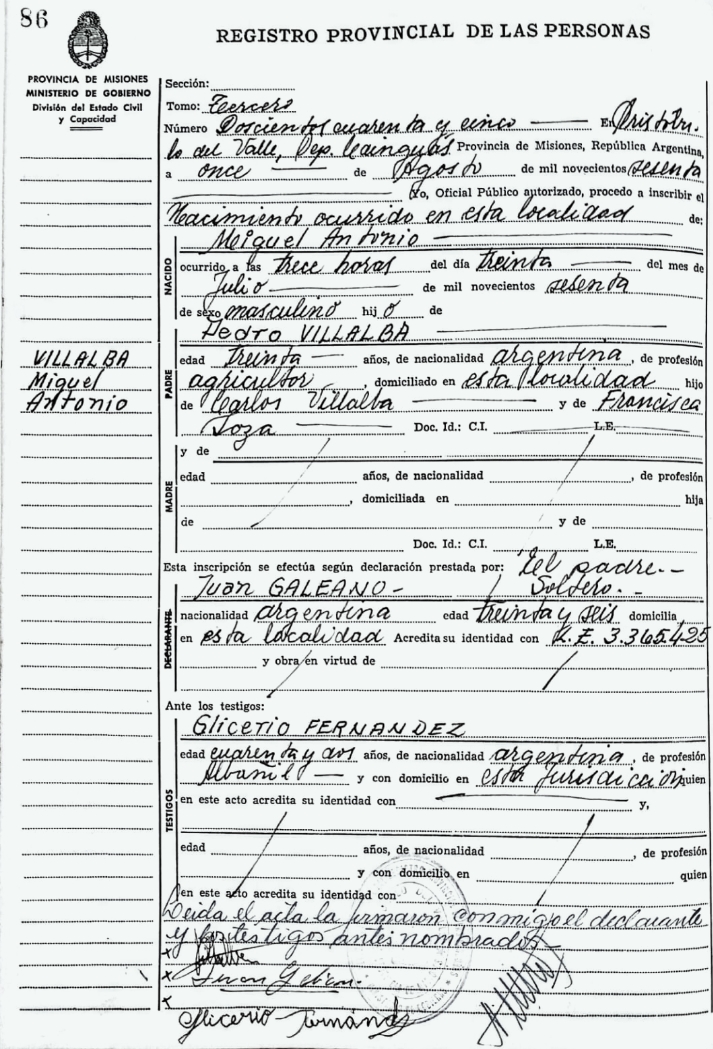 86
REGISTRO PROVINCIAL DE LAS PERSONAS
PROVINCIA DE MISIONES
MINISTERIO DE GOBIERNO
División del Estado Civil
y Capacidad
VILLALBA
Miguel
Antonio
Sección:
Tomo: Tercero
Número Doscientos cuarenta y cinco En Aristobu-
lo del Valle, Dep. Cainguás Provincia de Misiones, República Argentina,
a once de Agosto de mil novecientos sesenta
Yo, Oficial Público autorizado, procedo a inscribir el
Nacimiento ocurrido en esta localidad de:
NACIDO
Miguel Antonio
ocurrido a las trece horas del día treinta del mes de
Julio de mil novecientos sesenta
de sexo masculino hijo de
PADRE
Pedro VILLALBA
edad treinta años, de nacionalidad argentina, de profesión
agricultor, domiciliado en esta localidad hijo
de Carlos Villalba y de Francisca
Toza Doc. Id.: C.I. L.E.
MADRE
y de
edad años, de nacionalidad, de profesión
, domiciliada en hija
de y de
Doc. Id.: C.I. L.E.
Esta inscripción se efectúa según declaración prestada por: el padre.-
DECLARANTE
Juan GALEANO - Soltero.-
nacionalidad argentina edad treinta y seis domicilia
en esta localidad Acredita su identidad con L.E. 3.365.425
y obra en virtud de
Ante los testigos:
TESTIGOS
Glicerio FERNANDEZ
edad cuarenta y dos años, de nacionalidad argentina, de profesión
Albañil y con domicilio en esta jurisdicción quien
en este acto acredita su identidad con y,
edad años, de nacionalidad, de profesión
y con domicilio en quien
en este acto acredita su identidad con
Leida el acta la firmaron conmigo el declarante
y los testigos antes nombrados-
x
x Juan
x
Glicerio Fernández